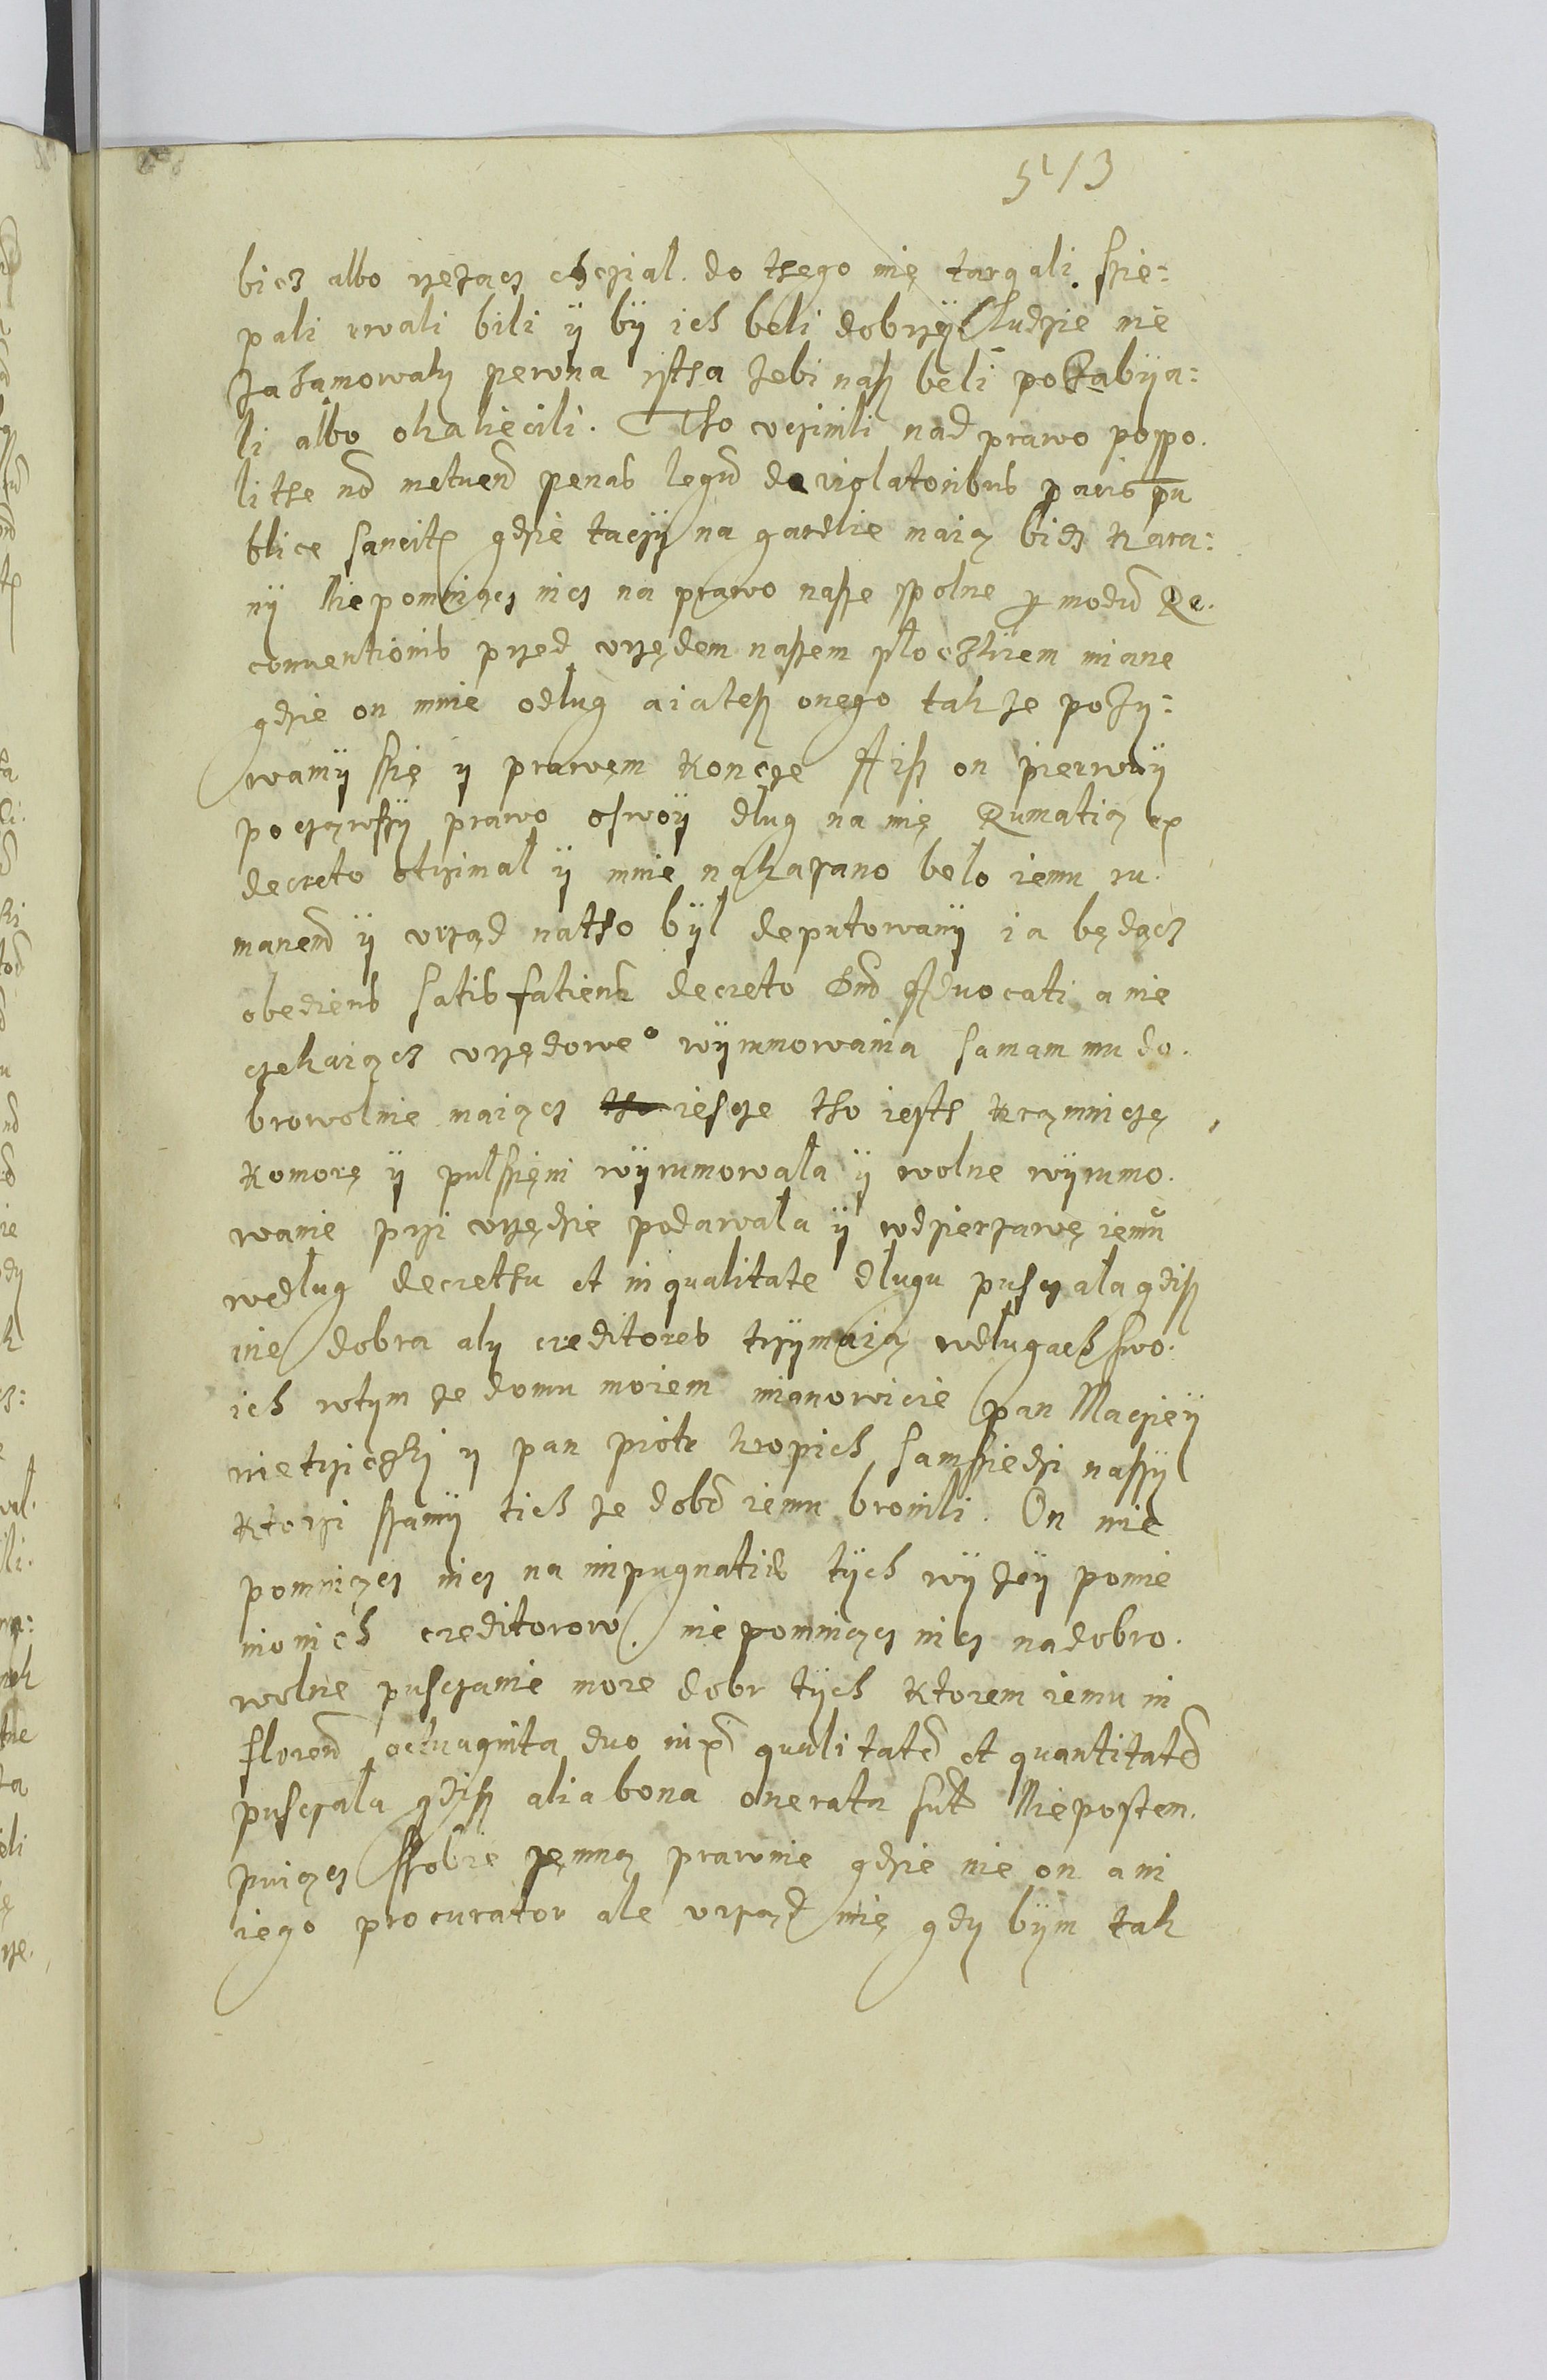 513
bicz albo rzezacz chczial. do thego mię targali szie:
pali rwali bili ÿ bÿ ich beli dobrzÿ ludzie nie
zahamowaly pewna rzttha zebi nasz beli pozabÿa:
li albo okaliecili. Tho uczinili nad prawo pospo.
lithe no metuend penas legum de violatoribus pacis pu
blice sancitę gdzie taczÿ na gardlie maią bidz kara:
nÿ Niepomniącz nicz na prawo nasze spolne per modum Re.
conuentionis przed urzędem naszem płoczkiem miane
gdzie on mnie o dług a ia tesz onego takze pozy:
wamÿ szię y prawem koncze Aisz on pierwuÿ
poczząwszy prawo oswoÿ dlug na mię Rumatią ex
decreto otrzimal ÿ mnie nakazano belo iemu ru.
manend ÿ urząd natho bÿl deputowanÿ ia będącz
obediens satisfatiens decreto Dnd Aduocati a nie
czekaiącz urzędowe° wÿrumowania sama mu do.
browolnie maiącz iescze tho iesth kramniczą
komorę ÿ pulszieni wÿrumowała ÿ wolne wÿrumo.
wanie przi urzędzie podawala ÿ wdzierzawę iemu
według decrethu et in qualitate dlugu pusczala gdisz
ine dobra aly creditores trzÿmaią wdlugach swo.
ich wtym ze domu moiem mianowicie pan Macziey
nietrziczki y pan piotr kropich samsziedzi naszÿ
ktorzi szamÿ tich ze dobr iemu bronili. On nie
pomniącz nicz na impugnatid tÿch wÿzeÿ pomie
nionich creditorow. nie pomniącz nicz nadobro.
wolne pusczanie more dobr tÿch ktorem iemu in
floren octuaginta duo in qualitate et quantitate
pusczala gdisz alia bona onerata sut Nieposten.
puiącz szobie zemną prawnie gdzie nie on ani
iego procurator ale urząd mię gdy bÿm tak